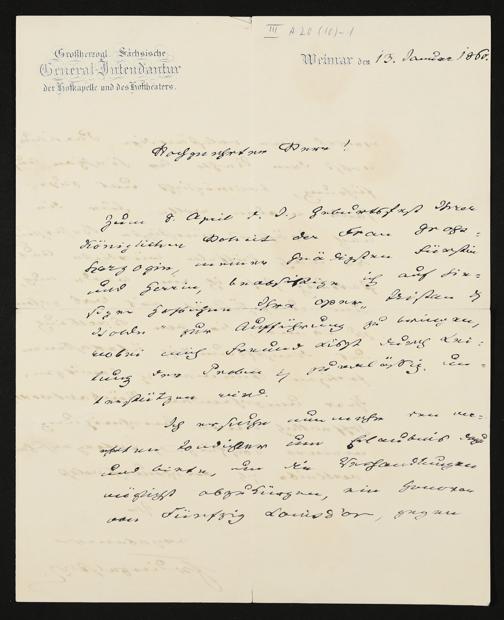 III A20 (10)-1
Großherzogl. Sächsische
General-Intendantur
der Hofkapelle und des Hoftheaters.
Weimar den 13. Januar 1860.
Hochgeehrter Herr!
Zum 8. April d. J., Geburtsfest Ihrer
Königlichen Hoheit der Frau Groß-
herzogin, meiner gnädigsten Fürstin
und Herrin, beabsichtige ich auf hie-
siger Hofbühne Ihre Oper, Tristan &
Isolde zur Aufführung zu bringen,
wobei mich Freund Liszt durch Lei-
tung der Proben zuverlässig un-
terstützen wird.
Ich ersuche nunmehr den
Tondichter um Erlaubnis dazu
und biete, um die Verhandlungen
möglichst abzukürzen, ein Honorar
von Fünfzig Louisd'or, gegen